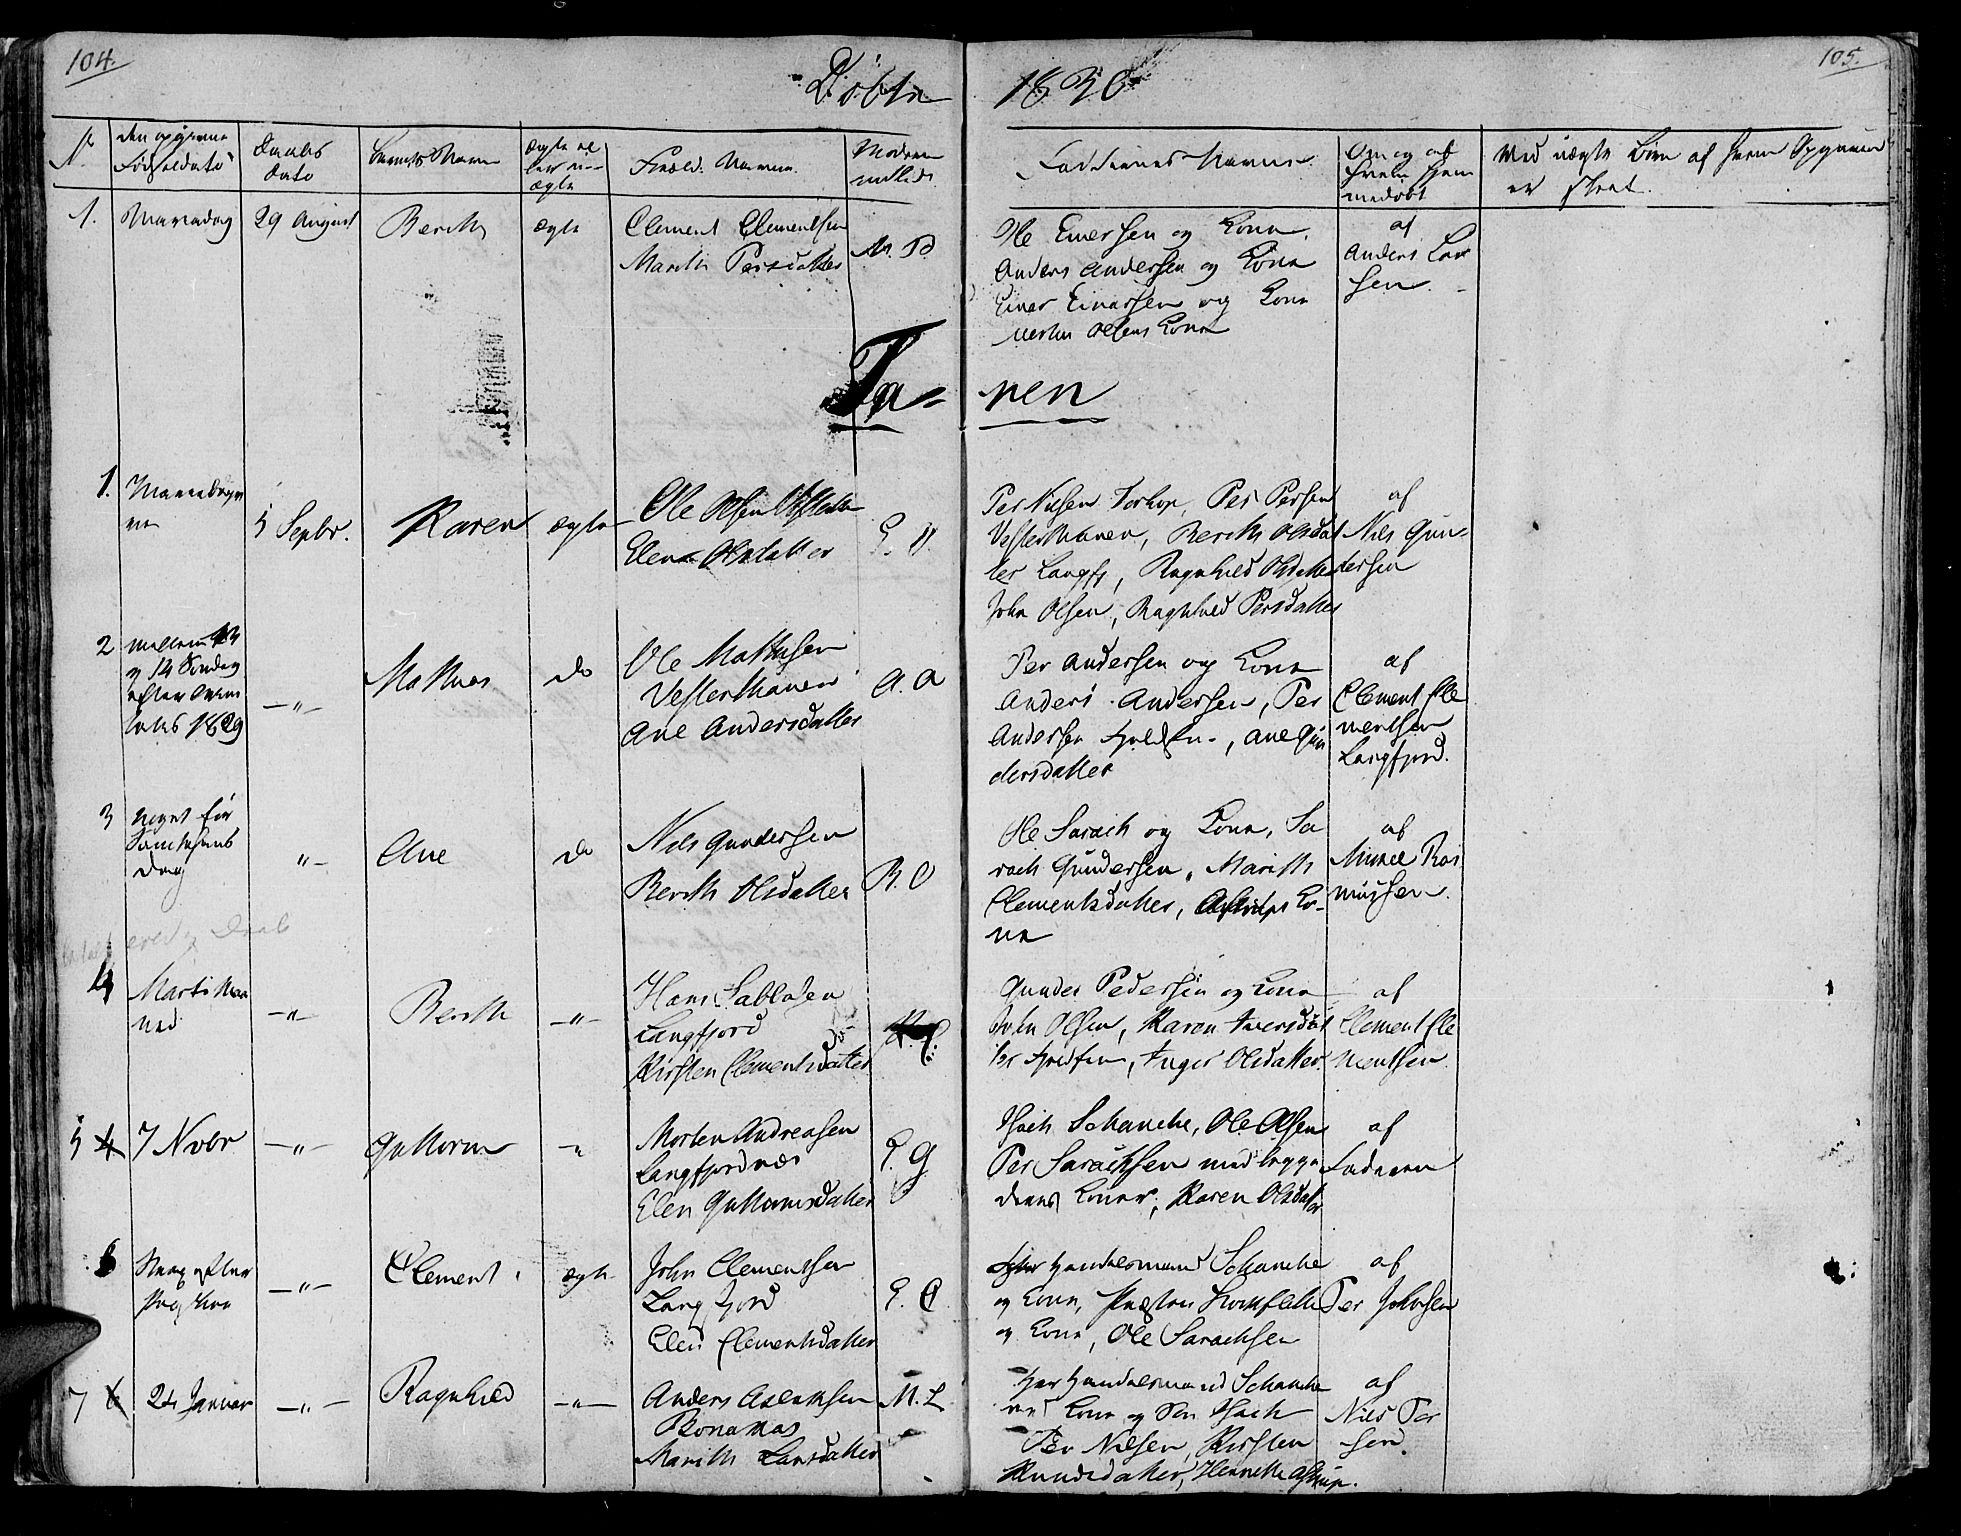 104.
Døbte
1830
105.
N.
den opgivne
Fødselsdato
Daabs
dato
Barnets Navn
Ægte el
ler u-
ægte
Foræld. Navne.
Moderen
indleds
Faddernes Navne
Om og af
hvem hjem
medøbt
Ved uægte Børn af hvem Opgivend
er skeet.
1.
Mariadag
29 August
Berith
ægte
Clement Clementsen
Marith Persdatter
M. P.
Ole Einersen og Kone,
Anders Andersen og Kone
Einer Einersen og Kone
Olsens Kone
af
Anders Lar
sen.
Ta=
nen
1.
5 Sepbr.
Karen
ægte
Ole Olsen
Elen Olsdatter
E. O.
Per Nielsen Per Persen
Vestertanen, Berith Olsdat
ter Langfj, Ragnhild Olsdatter
John Olsen, Ragnhild Persdatter
af
Nils Gun-
dersen
2
mellem 13
og 14 Søndag
efter
1829
—"—
Mathias
do
Ole Mathisen
Vestertanen
Ane Andersdatter
A. A
Per Andersen og Kone
Anders Andersen, Per
Andersen , Ane Gun
dersdatter
af
Clement Cle
mentsen
Langfjord.
3
Noget før
Sanct Hans
Dag
"—
Ane
do
Nils Gundersen
Berith Olsdatter
B. O
Ole Sarach og Kone, Sa
rach Gundersen, Marith
Clementsdatter, Astrups Ko-
ne
af
Mikkel Ras
mussen.
Daab
4
Marti Maa
ned
—"—
Berith
—"—
Hans Sablasen
Langfjord
Kirsten Clementsdatter
Gunder Pedersen og Kone
John Olsen, Karen Iversdat
ter , Inger Olsdatter
af
Clement Cle
mentsen
5
7 Nvbr
—"—
Guttorm
"
Morten Andreasen
Langfjordnæs
Elen Guttormsdatter
E. G
Isach Schanche, Ole Olsen
Per Sarachsen med begge
deres Koner, Karen Olsdatter
af
Faderen
6
Strax efter
—"—
Clement
ægte
John Clementsen
Langfjord
Elen Clementsdatter
E. C
Handelsmand Schanche
og Kone, Præsten Stockfleth
og Kone, Ole Sarachsen
af
Per Johnsen
7
24 Januar
—"—
Ragnhild
—"—
Anders Aslaksen
Bonakas
Marith Larsdatter
M. L
Herr Handelsmand Schanche
med Kone og Søn Isach
Per Nilsen, Kirsten
Knudsdatter, Henrikke Astrup.
af
Nils Per
sen.